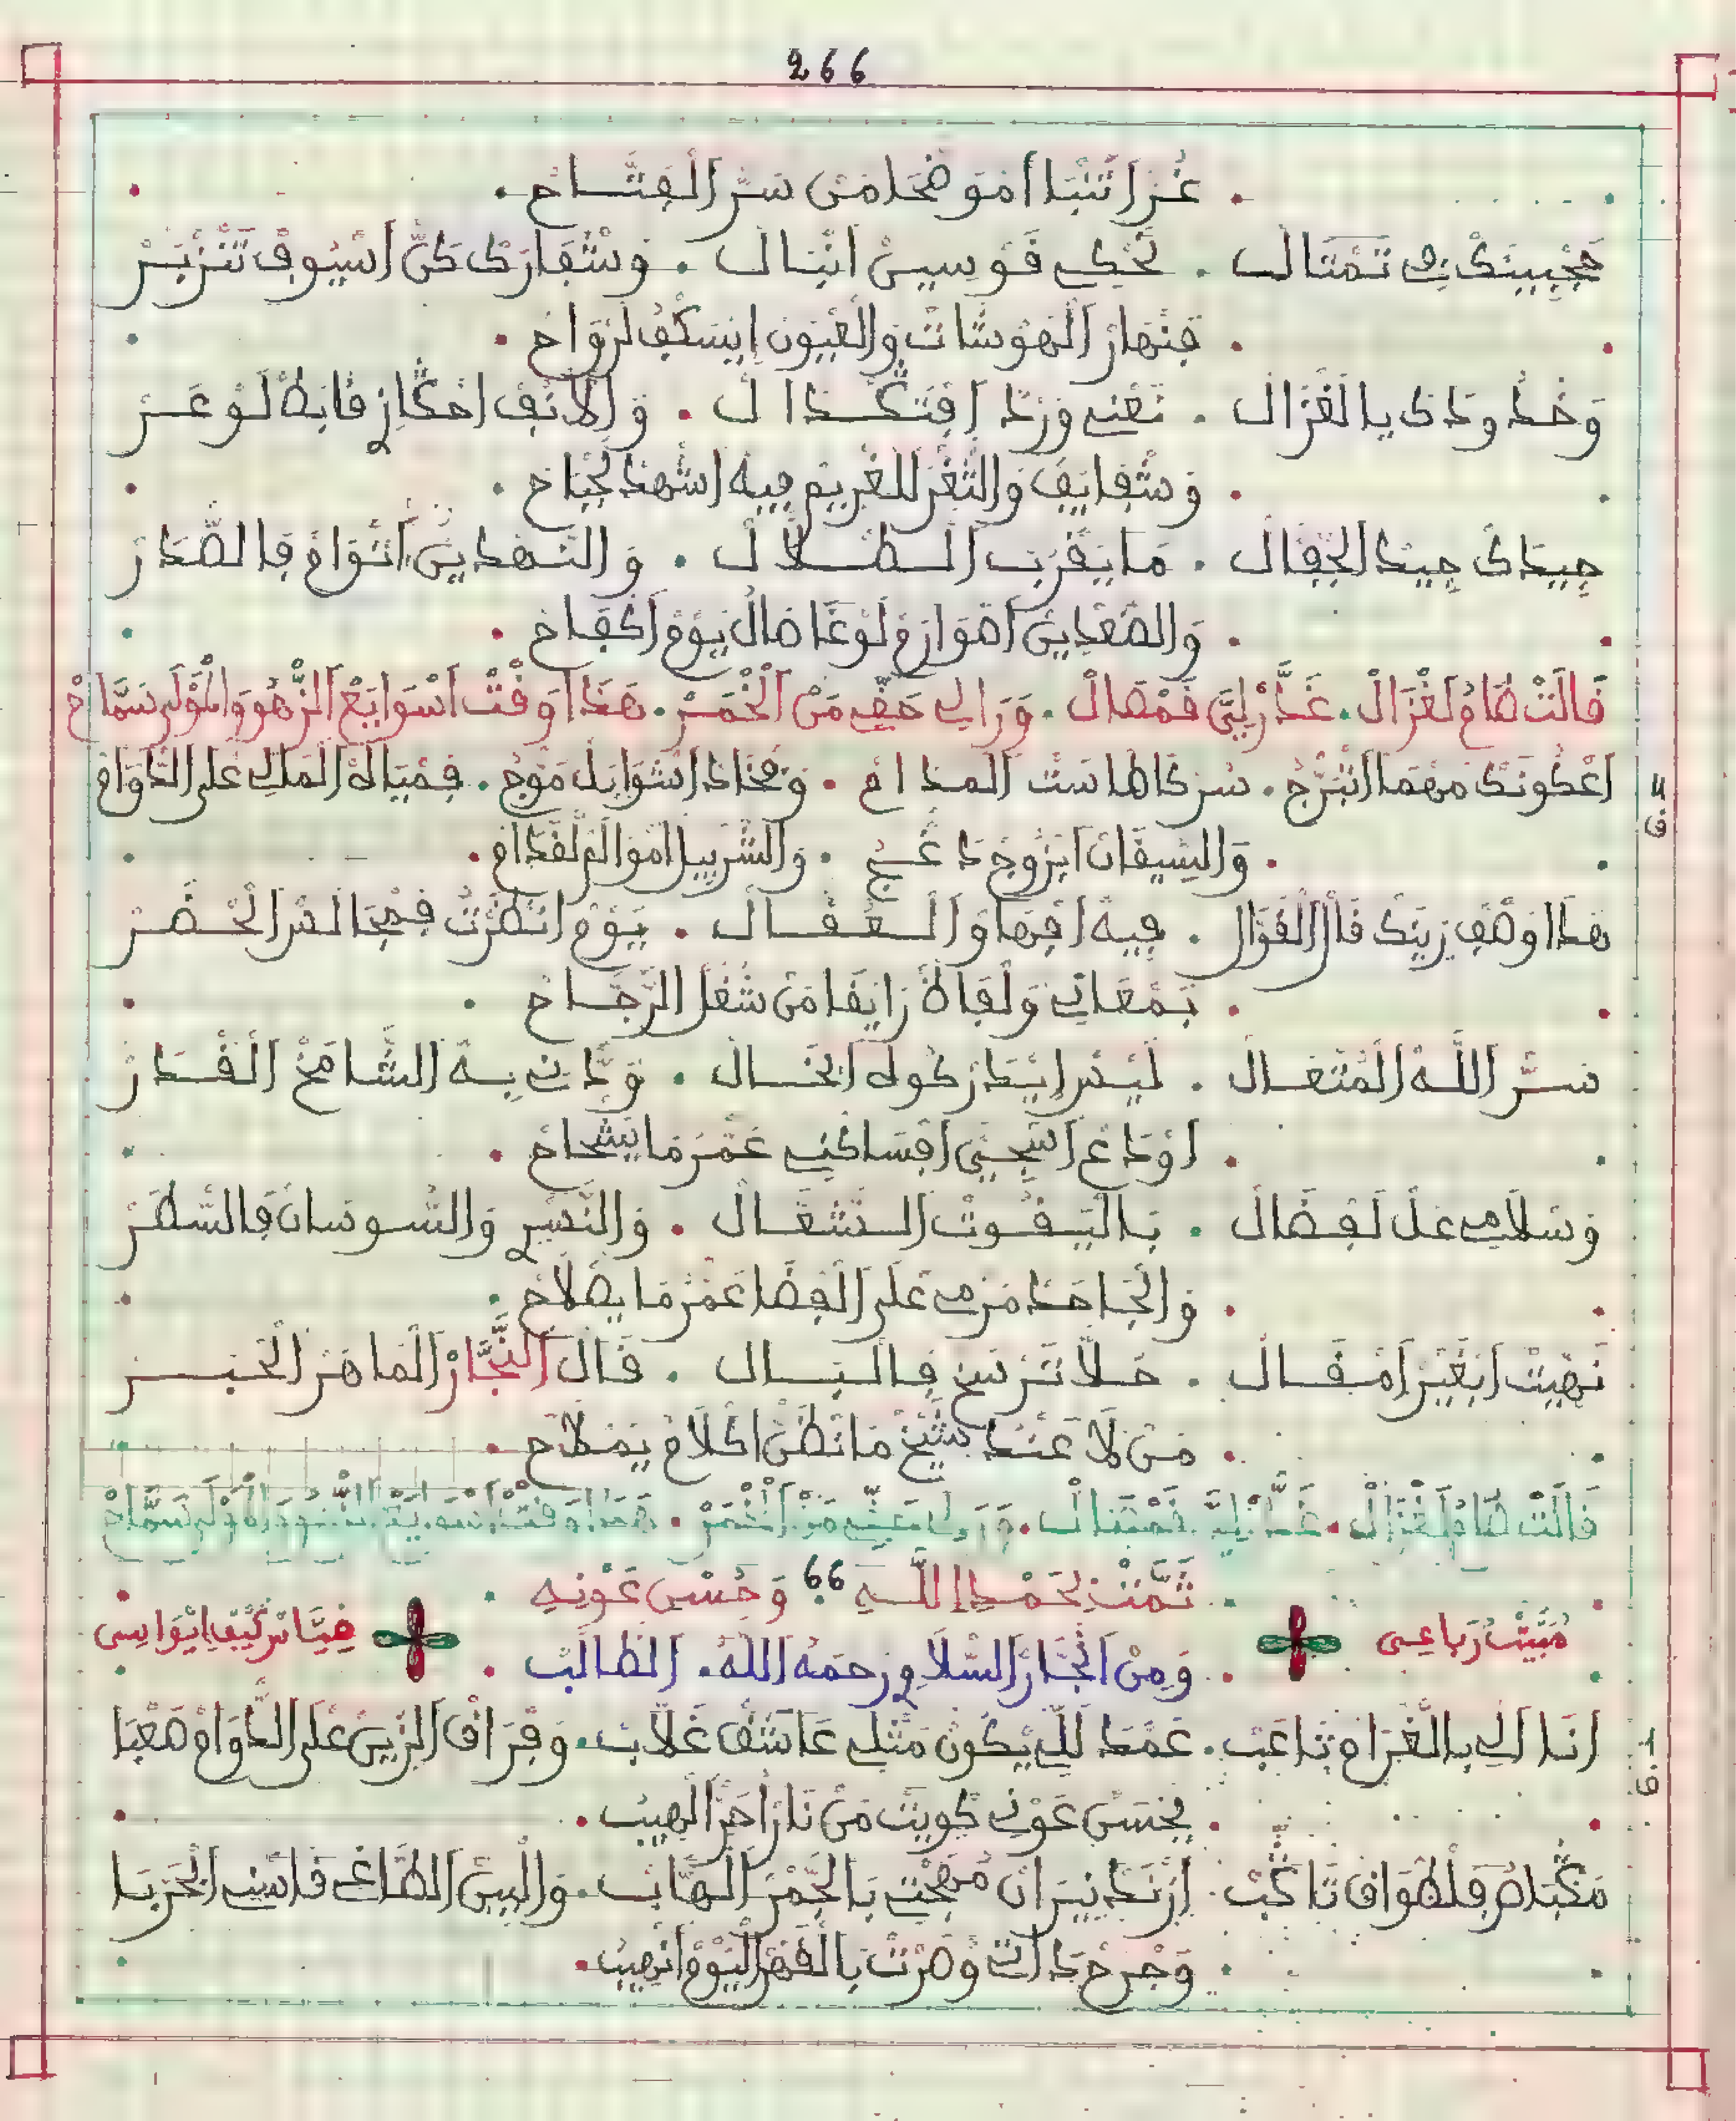 266
غُرَّا تَنْبَا أمَوضْحَا مَنْ سَرّ الْفِتَّاحْ
حَجْبِينَكْ فِي تَمْثَالْ . تَحْكِي قَوْسِينْ انْبَالْ . وَشْفَارَكْ كَنّْ اسْيُوفْ تَنْزْبَرْ
فَنْهَارْ الْهَوْشَاتْ وَالْعْيُونْ ايْسَكْفُ لَرْوَاحْ
وَخْدُودَكْ يالغْزَالْ . تَعْنِي وَرْدْ افْتَكْدَالْ . وَالَانِفْ احْكَارْ قَابَطْ لَوْعَرْ
وَشْفَايَفْ وَالثّغَرْ للغْرِيمْ فِيهْ اشْهَدْ لَجْبَاحْ
جِيدَكْ جِيدْ الجْفَالْ . مَا يَقْرَبْ الطْلَالْ . وَالنَّهْدِينْ اتْوَامْ فَالصّْدَرْ
وَالصَّعْدِينْ اصْوَارَمْ لَوْغَا صَالْ يَوْمْ أكْفَاحْ
قَالَتْ طَامُ لَغْزَالْ . غَدَّرْ لِيَّ فَمْصَالْ . وَرَا لِي حَقِّي مَنْ الْخْمَرْ . هَذَا وَقْتْ اسْوَايَعْ الزّْهُو وَالْمَوْلَى سَمَّاحْ
اعْكُونَكْ مَهْمَا اتْبَرَّجْ . سُرْ كَاطَاسَتْ المدَامْ . وَفْخَادْ اشْوَابَلْ مَوْجْ . فِمْيَاهْ الْمَلِي عْلَى الدّْوَامْ
ف 4
وَالسِّيقَانْ ايْرُوجْ دَعَّجْ . وَالشَّرْبِيلْ امْوَالَمْ لَقْدَامْ
هَذَا وَصْفْ زِينَكْ قَالْ الْقَوَّالْ . فِيهْ افْهَاوْ الْعُقَّالْ . يَوْمْ انْظَرْتْ فِمْجَالَسْ الْحْضَرْ
بَمْعَانِي وَلْفَاظْ رَايقَا مَنْ شُغْلْ الرّْجَاحْ
سَرّْ اللَّهْ الْمُتْعَالْ . لَيْسْ ايْدَرْكُوهْ ابْخَالْ . وَدَّانِي بِهْ الشَّامَخْ الْقْدَرْ
اوْدَعْ اسْجِنِّي افْسَاكْنِي عَمْرْ مَا يَشْحَاحْ
وَسْلَامِي عَلْ لَفْضَالْ . بَالْيَقُوتْ الشْعَالْ . وَالنَّسْرِي وَالسُّوسَانْ فَالسّْطَرْ
وَالْجَاحَدْ مَرْمِي عْلَى الْفْضَا عَمْرْ مَا يَصْلَاحْ
نَهِّيتْ ابْغِيرْ امْقَالْ . حُلَّا تَرْسَخْ فِالْبَالْ . قَالْ النَّجَّارْ الْمَاهَرْ الْخْبَرْ
مَنْ لَا عَنْدُ شَيْخْ مَا نْظَنّْ اكْلَامُ يَمْلَاحْ
قَالَتْ طَامُ لَغْزَالْ . غَدَّرْ لِيَّ فَمْصَالْ . وَرَا لِي حَقِّي مَنْ الْخْمَرْ . هَذَا وَقْتْ اسْوَايَعْ الزّْهُو وَالْمَوْلَى سَمَّاحْ
تَمَّتْ بِحَمْدِ اللَّهِ 66 وَحُسْنِ عَوْنِهِ
مُبَيَّتْ رُبَاعِي
قِيَاسْ كِيفْ ايْوَاسِي
وَمِنْ انْجَارْ السّْلَاوِي رحمهُ اللَّهُ . الطَالَبْ
انَا الِي بالْغْرَامْ تَاعَبْ . عَمْدَ لَلِّي يْكُونْ مَثْلِي عَاشَقْ غَلَّابْ . وَفْرَاقْ الزِّينْ عْلَى الدّْوَامْ صَعْبَا
ف 1
يحْسَنْ عَوْنِي كْوِيتْ مَنْ نَارْ احَرّْ الْهِيبْ
مَكْبَاصُ فَلْطْوَاقْ تَاكَبْ . ازْنَدْ نِيرَانْ مُهْجْتِي بَالْجَمْرْ الْهَّابْ . وَالْبِينْ الطَّاغِي قَاسْنِي الْحَرْبَا
وَجْرَحْ ذَاتِي وَصْرَتْ بَالْقْهَرْ الْيَوْمْ انْهِيبْ